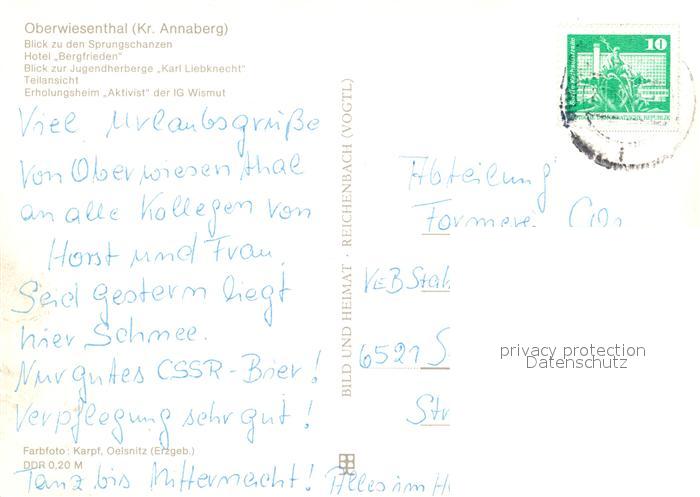 Oberwiesenthal (Kr. Annaberg)
Blick zu den Sprungschanzen
Hotel „Bergfrieden"
Blick zur Jugendherberge „Karl Liebknecht"
Teilansicht
Erholungsheim „Aktivist" der IG Wismut
Viel Urlaubsgrüße
von Oberwiesenthal
an alle Kollegen von
Horst und Frau.
Seid gestern liegt
hier Schnee.
Nur gutes CSSR-Bier!
Verpflegung sehr gut!
Farbfoto: Karpf, Oelsnitz (Erzgeb.)
DDR 0,20 M
Tanz bis Mitternacht! Alles im H
BILD UND HEIMAT · REICHENBACH (VOGTL)
10
DEUTSCHE DEMOKRATISCHE REPUBLIK
Abteilung
VEB Stah
6521 S
Str
privacy protection
Datenschutz